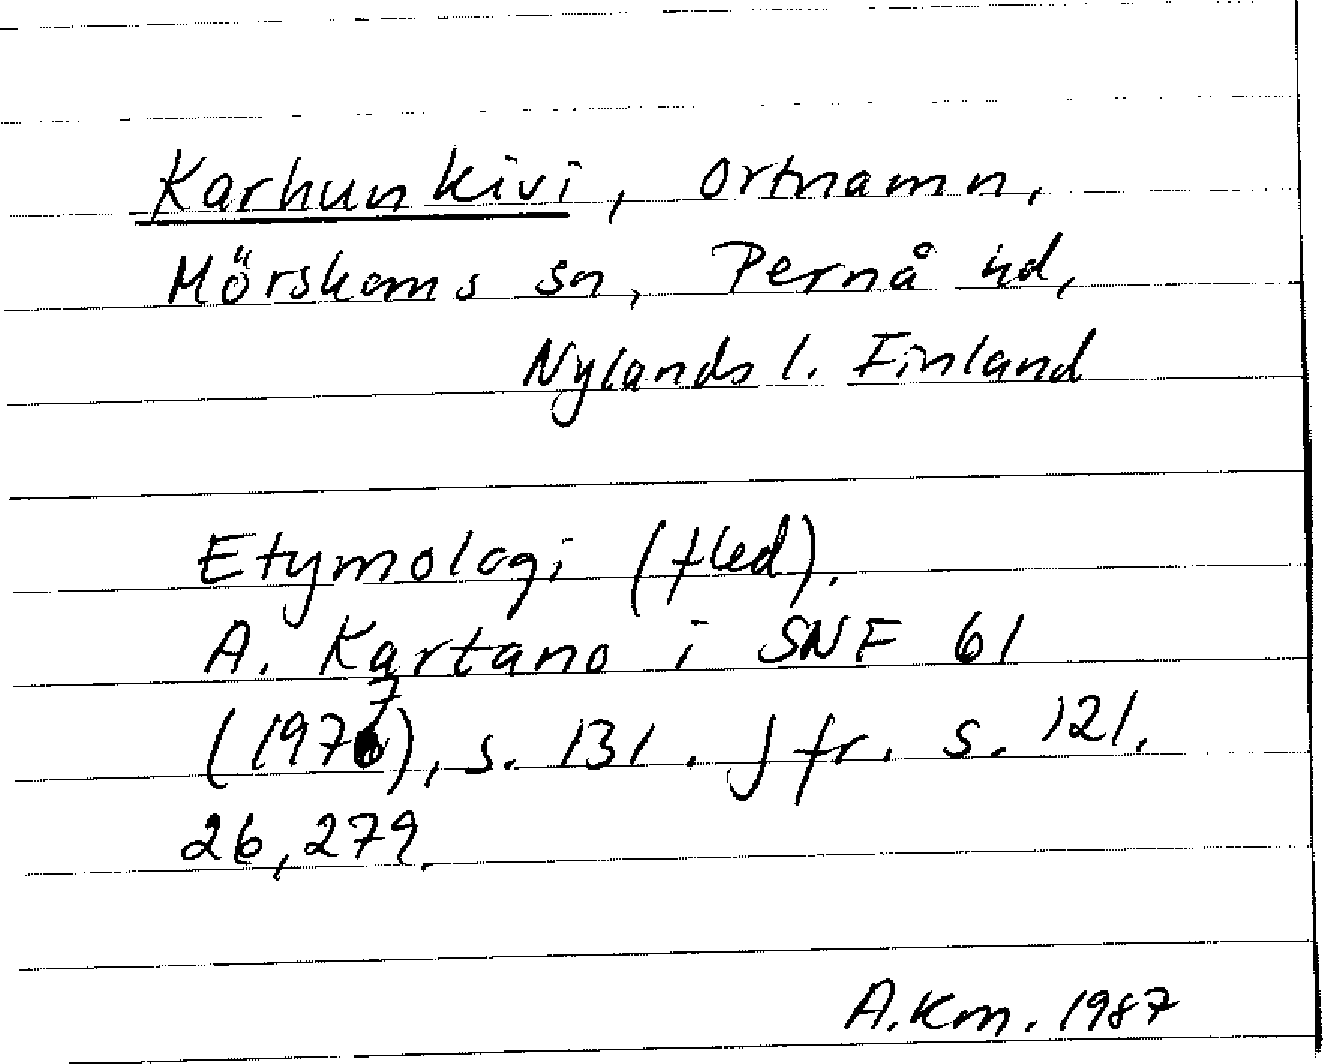 Karhunkivi, ortnamn,
Mörskoms sn, Pernå hd,
Nylands l. Finland
Etymologi (fled).
A. Kartano i SNF 61
(1977), s. 131. Jfr. s. 121.
26,279.
A.Km. 1987